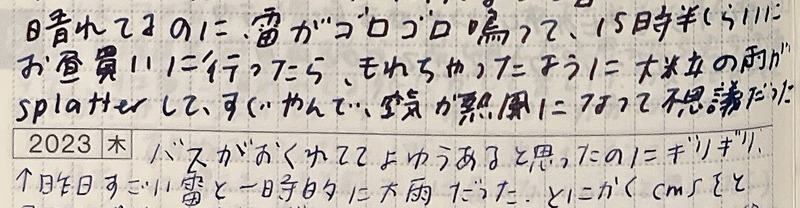 晴れてるのに、雷がゴロゴロ鳴って、15時半くらいに
お昼買いに行ったら、それちゃったように大粒の雨が
splatterして、すぐやんで、空気が熱風になって不思議だった
2023 木 バスがおくれててよゆうあると思ったのにギリギリ、
↑昨日すごい雷と一時的に大雨だった。とにかくcmsをと